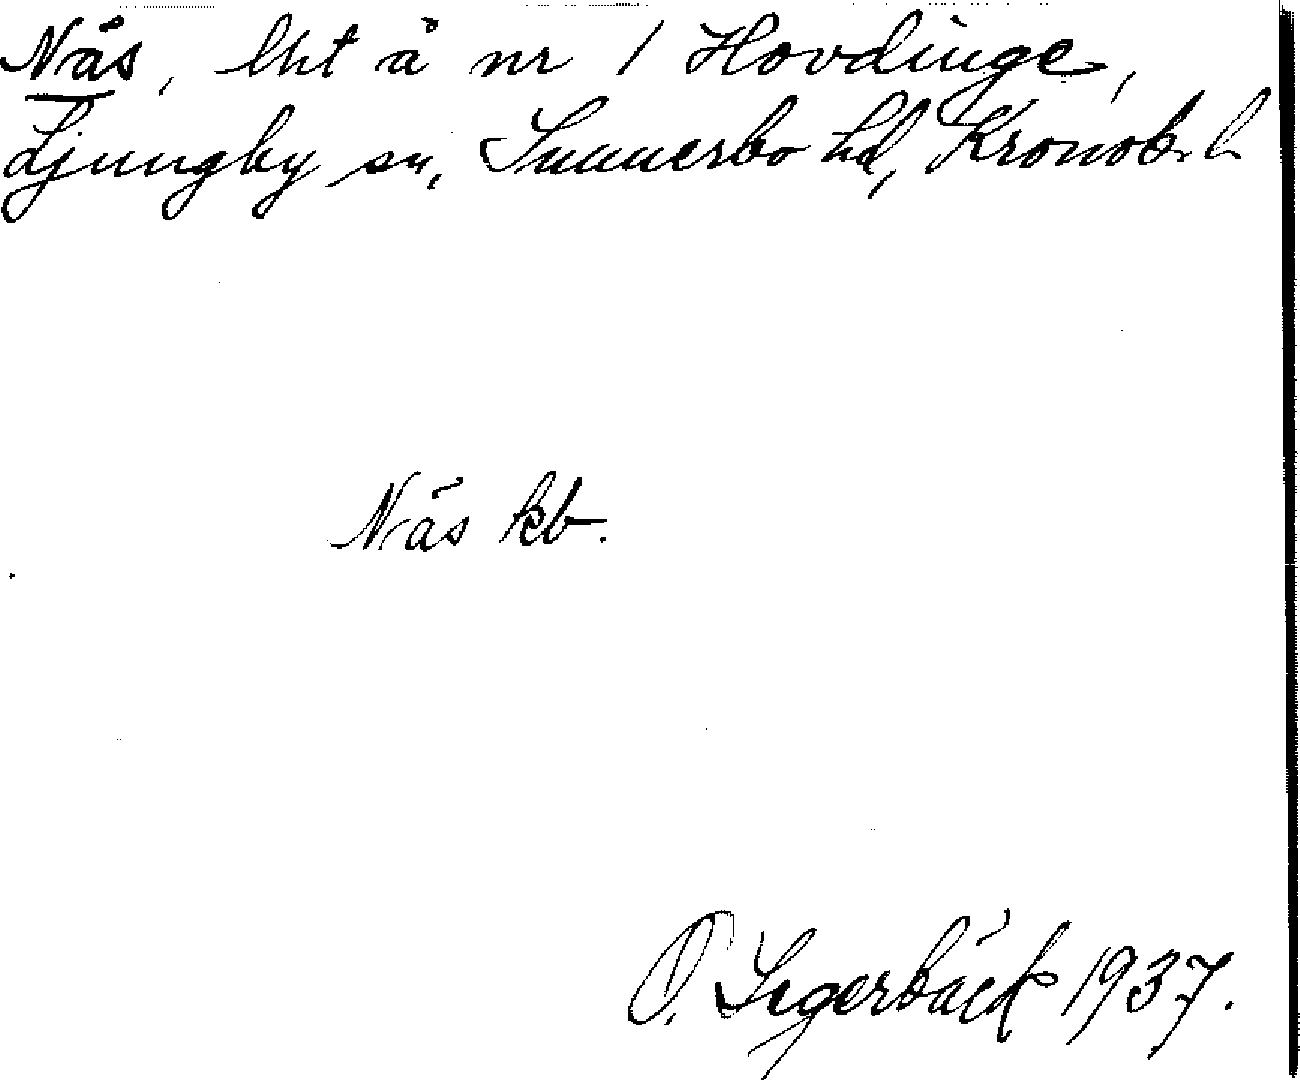 Näs, lht å nr 1 Hovdinge,
Ljungby sn, Sunnerbo hd, Kronob. l
Näs kb.
O. Segerbäck 1937.